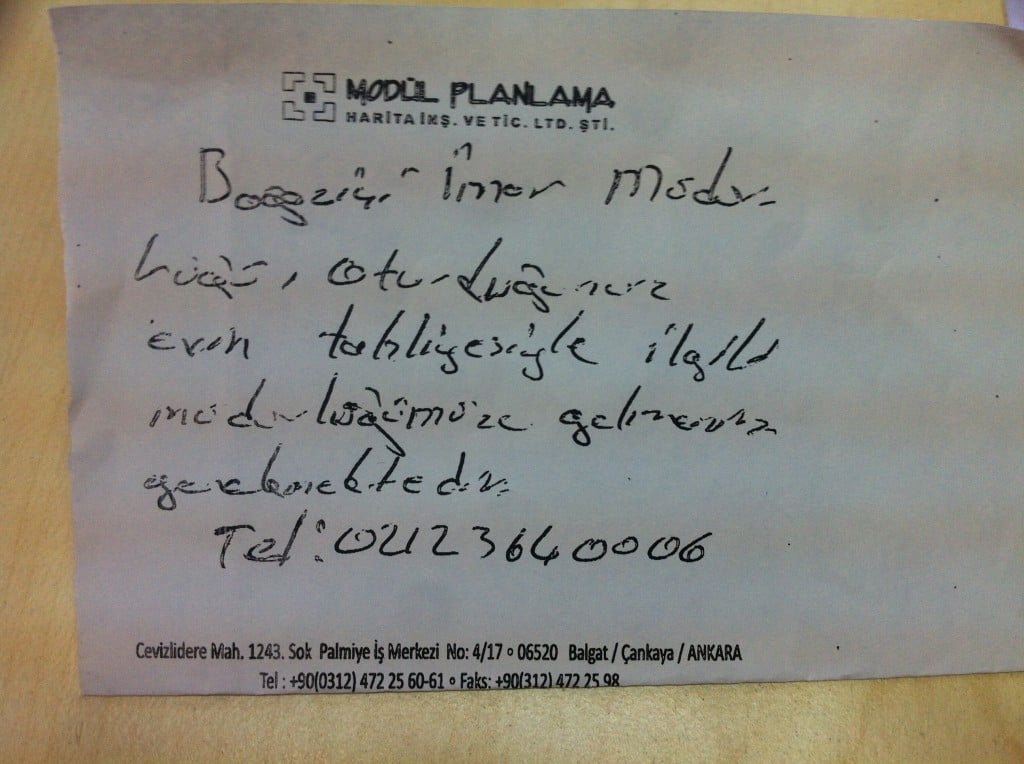 MODÜL PLANLAMA
HARİTA İNŞ. VE TİC. LTD. ŞTİ.
Boğaziçi İmar Müdür-
lüğü, Oturduğunuz
evin tahliyesiyle ilgili
müdürlüğümüze gelmeniz
gerekmektedir.
Tel: 0212 3640006
Cevizlidere Mah. 1243. Sok Palmiye İş Merkezi No: 4/17 ° 06520 Balgat / Çankaya / ANKARA
Tel : +90(0312) 472 25 60-61 ° Faks: +90(312) 472 25 98